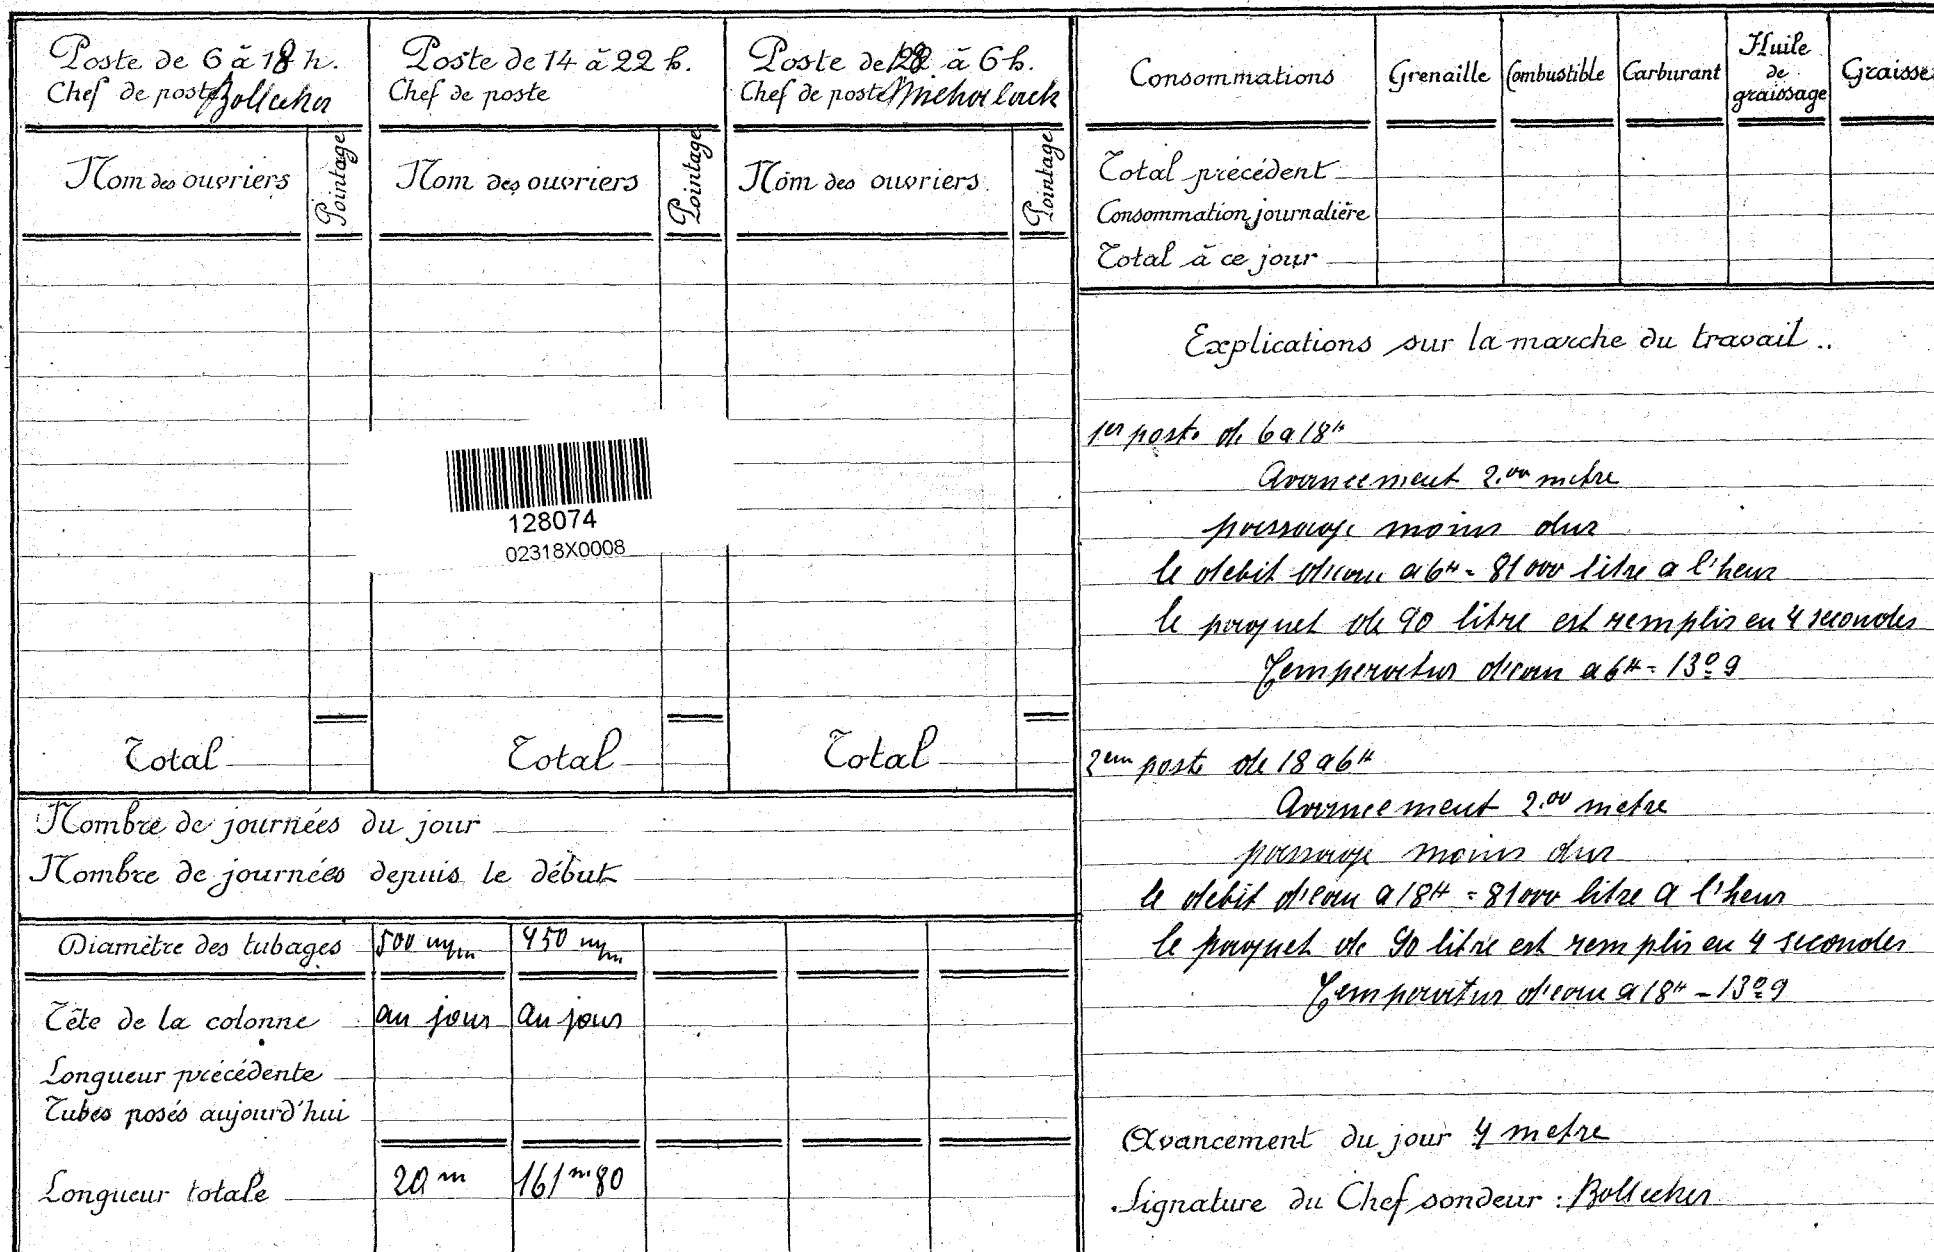 Poste de 6 à 18 h.
Chef de poste Bollecker
Nom des ouvriers
Pointage
Total
Poste de 14 à 22 h.
Chef de poste
Nom des ouvriers
Pointage
Total
Poste de 18 à 6 h.
Chef de poste
Nom des ouvriers
Pointage
Total
128074
02318X0008
Nombre de journées du jour
Nombre de journées depuis le début
Diamètre des tubages 500 m/m 450 m/m
Tête de la colonne au jour au jour
Longueur précédente
Tubes posés aujourd'hui
Longueur totale 20 m 161 m 80
Consommations Grenaille Combustible Carburant Huile de graissage Graisse
Total précédent
Consommation journalière
Total à ce jour
Explications sur la marche du travail..
1er poste de 6 a 18H
Avancement 2.00 metre
passage moins dur
le debit d'eau a 6H = 81000 litre a l'heur
le paquet de 90 litre est remplis en 4 secondes
Temperatur d'eau a 6H = 13º9
2em poste de 18 a 6H
Avancement 2.00 metre
passage moins dur
le debit d'eau a 18H = 81000 litre a l'heur
le paquet de 90 litre est remplis en 4 secondes
Temperatur d'eau a 18H - 13º9
Avancement du jour 4 metre
Signature du Chef sondeur : Bollecker